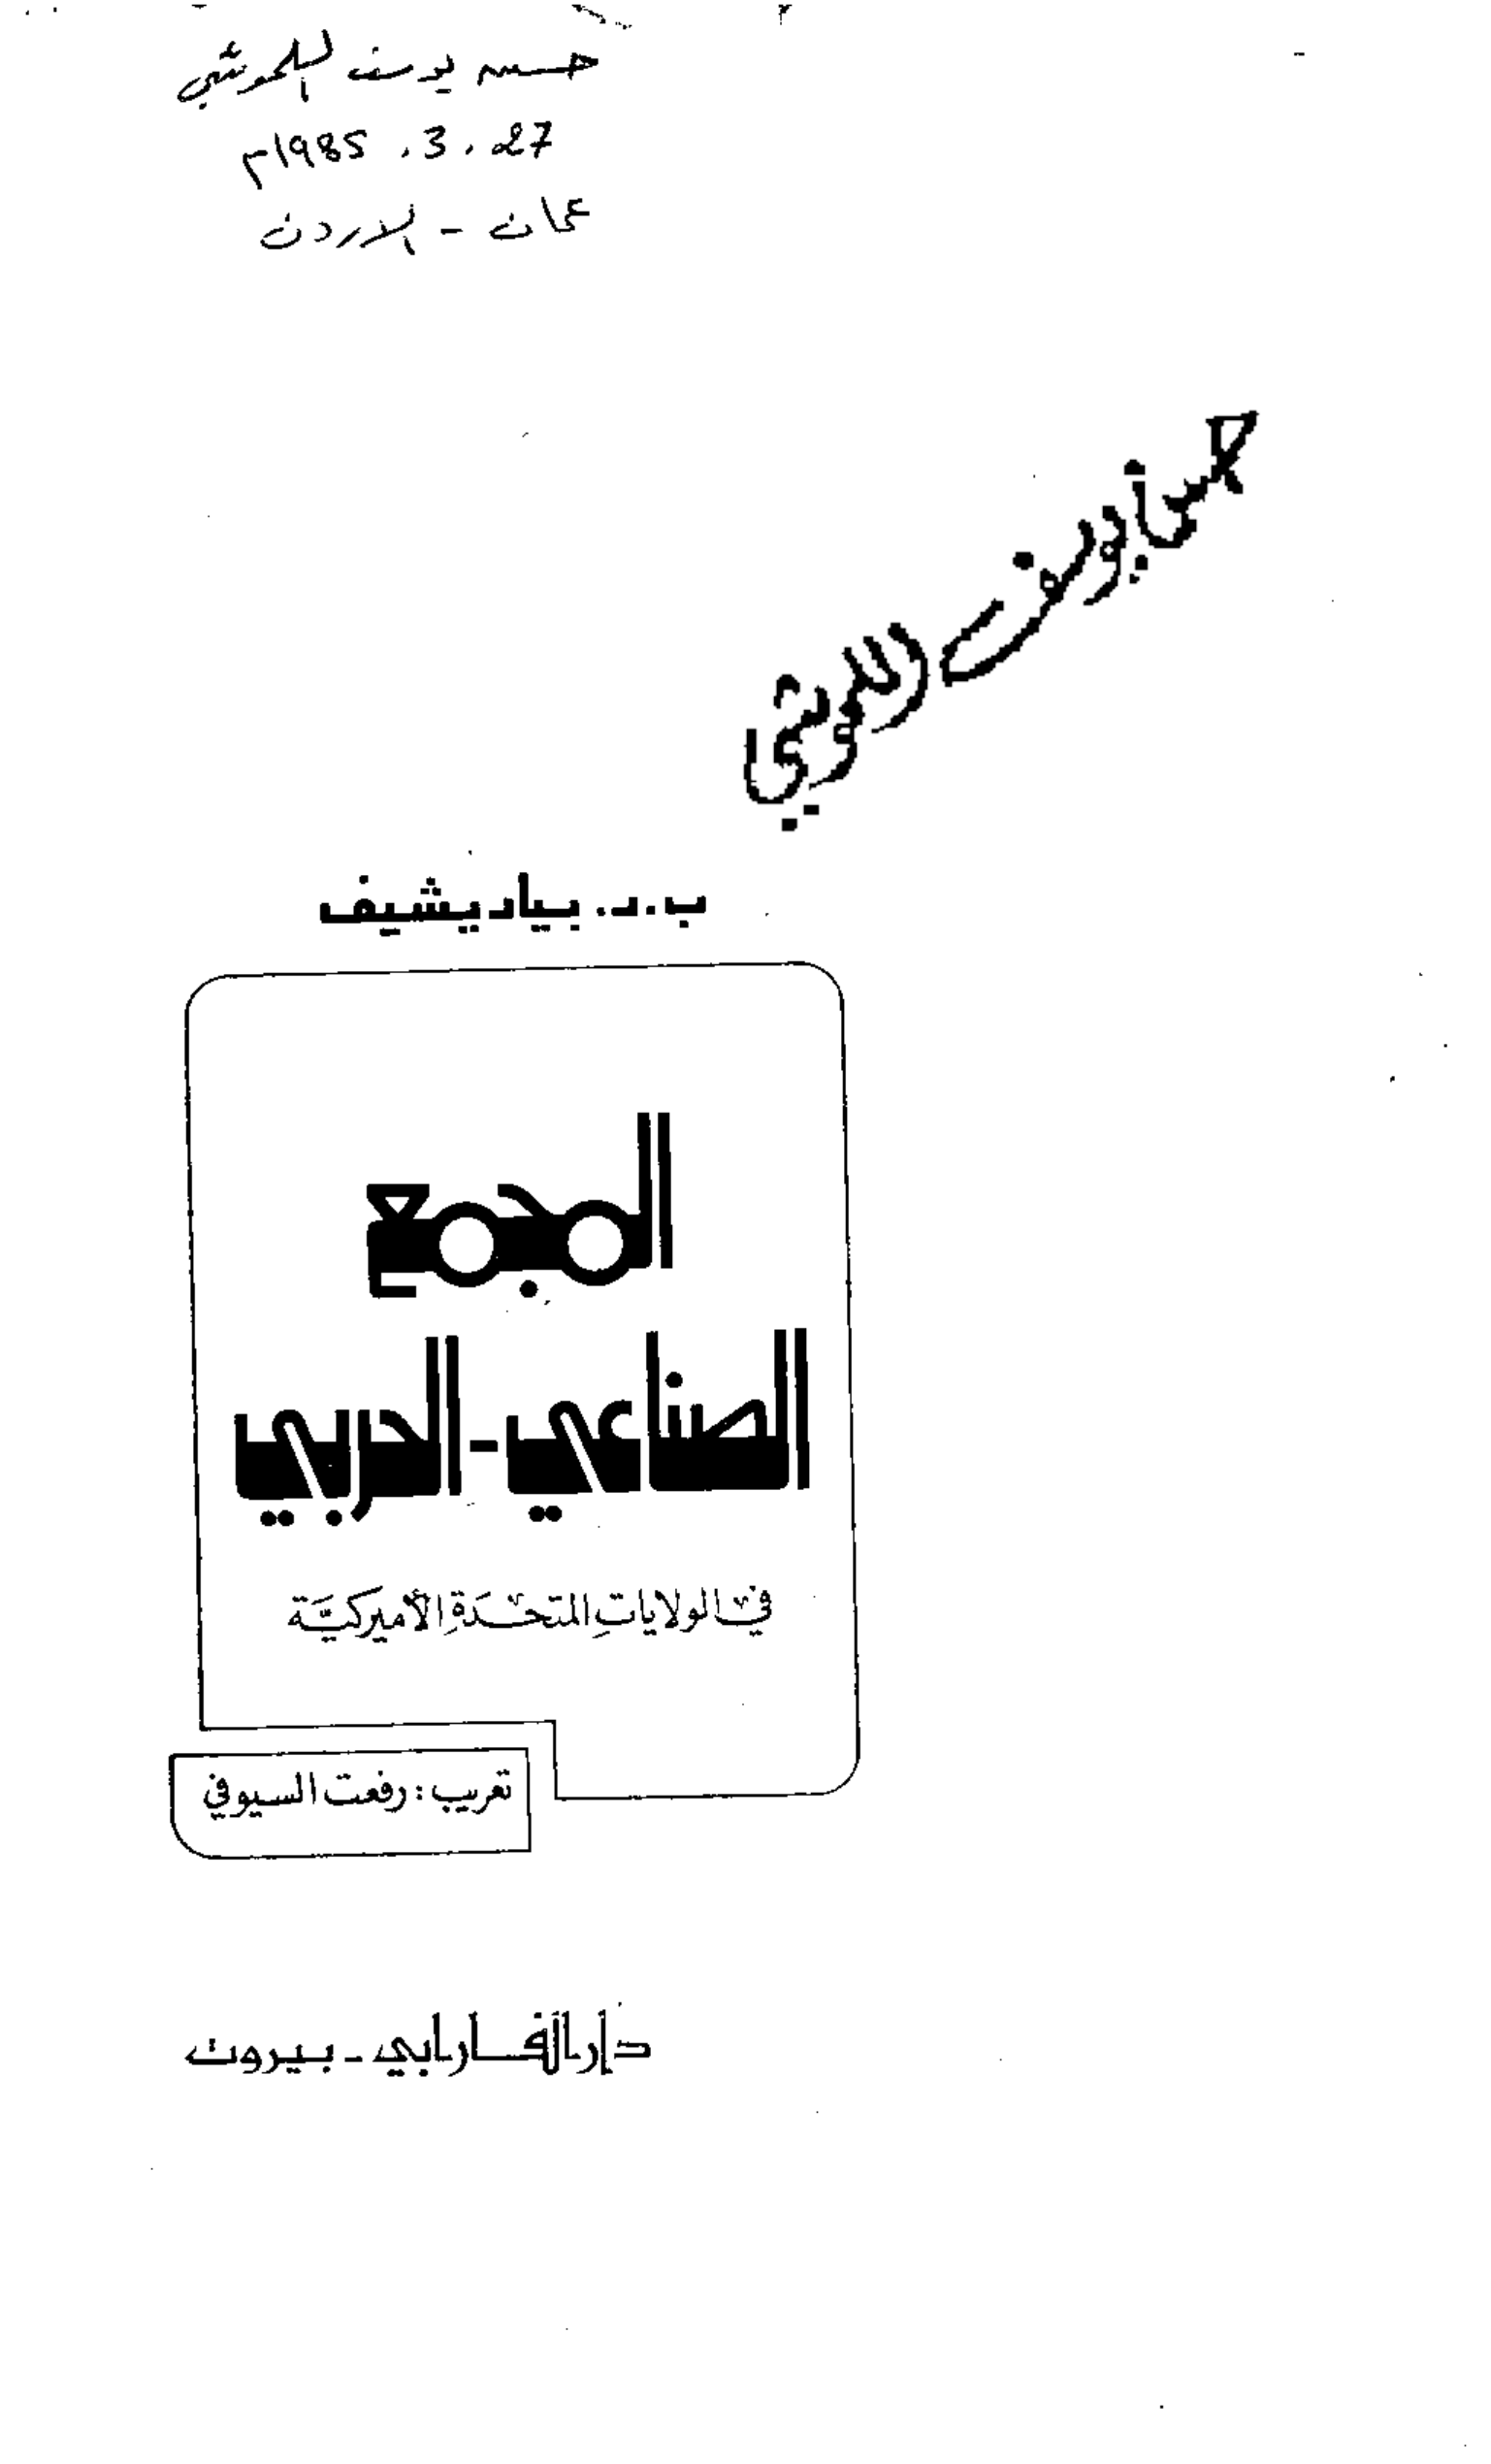 حسن يوسف
27 . 3 . 1985م
عمان - الاردن
ب.د. بياديشيف
المجمع
الصناعي - الحربي
في الولاياتِ المتحدَةِ الأميركيَّة
تعريب : رفعت السيوفي
دار الفارابي - بيروت